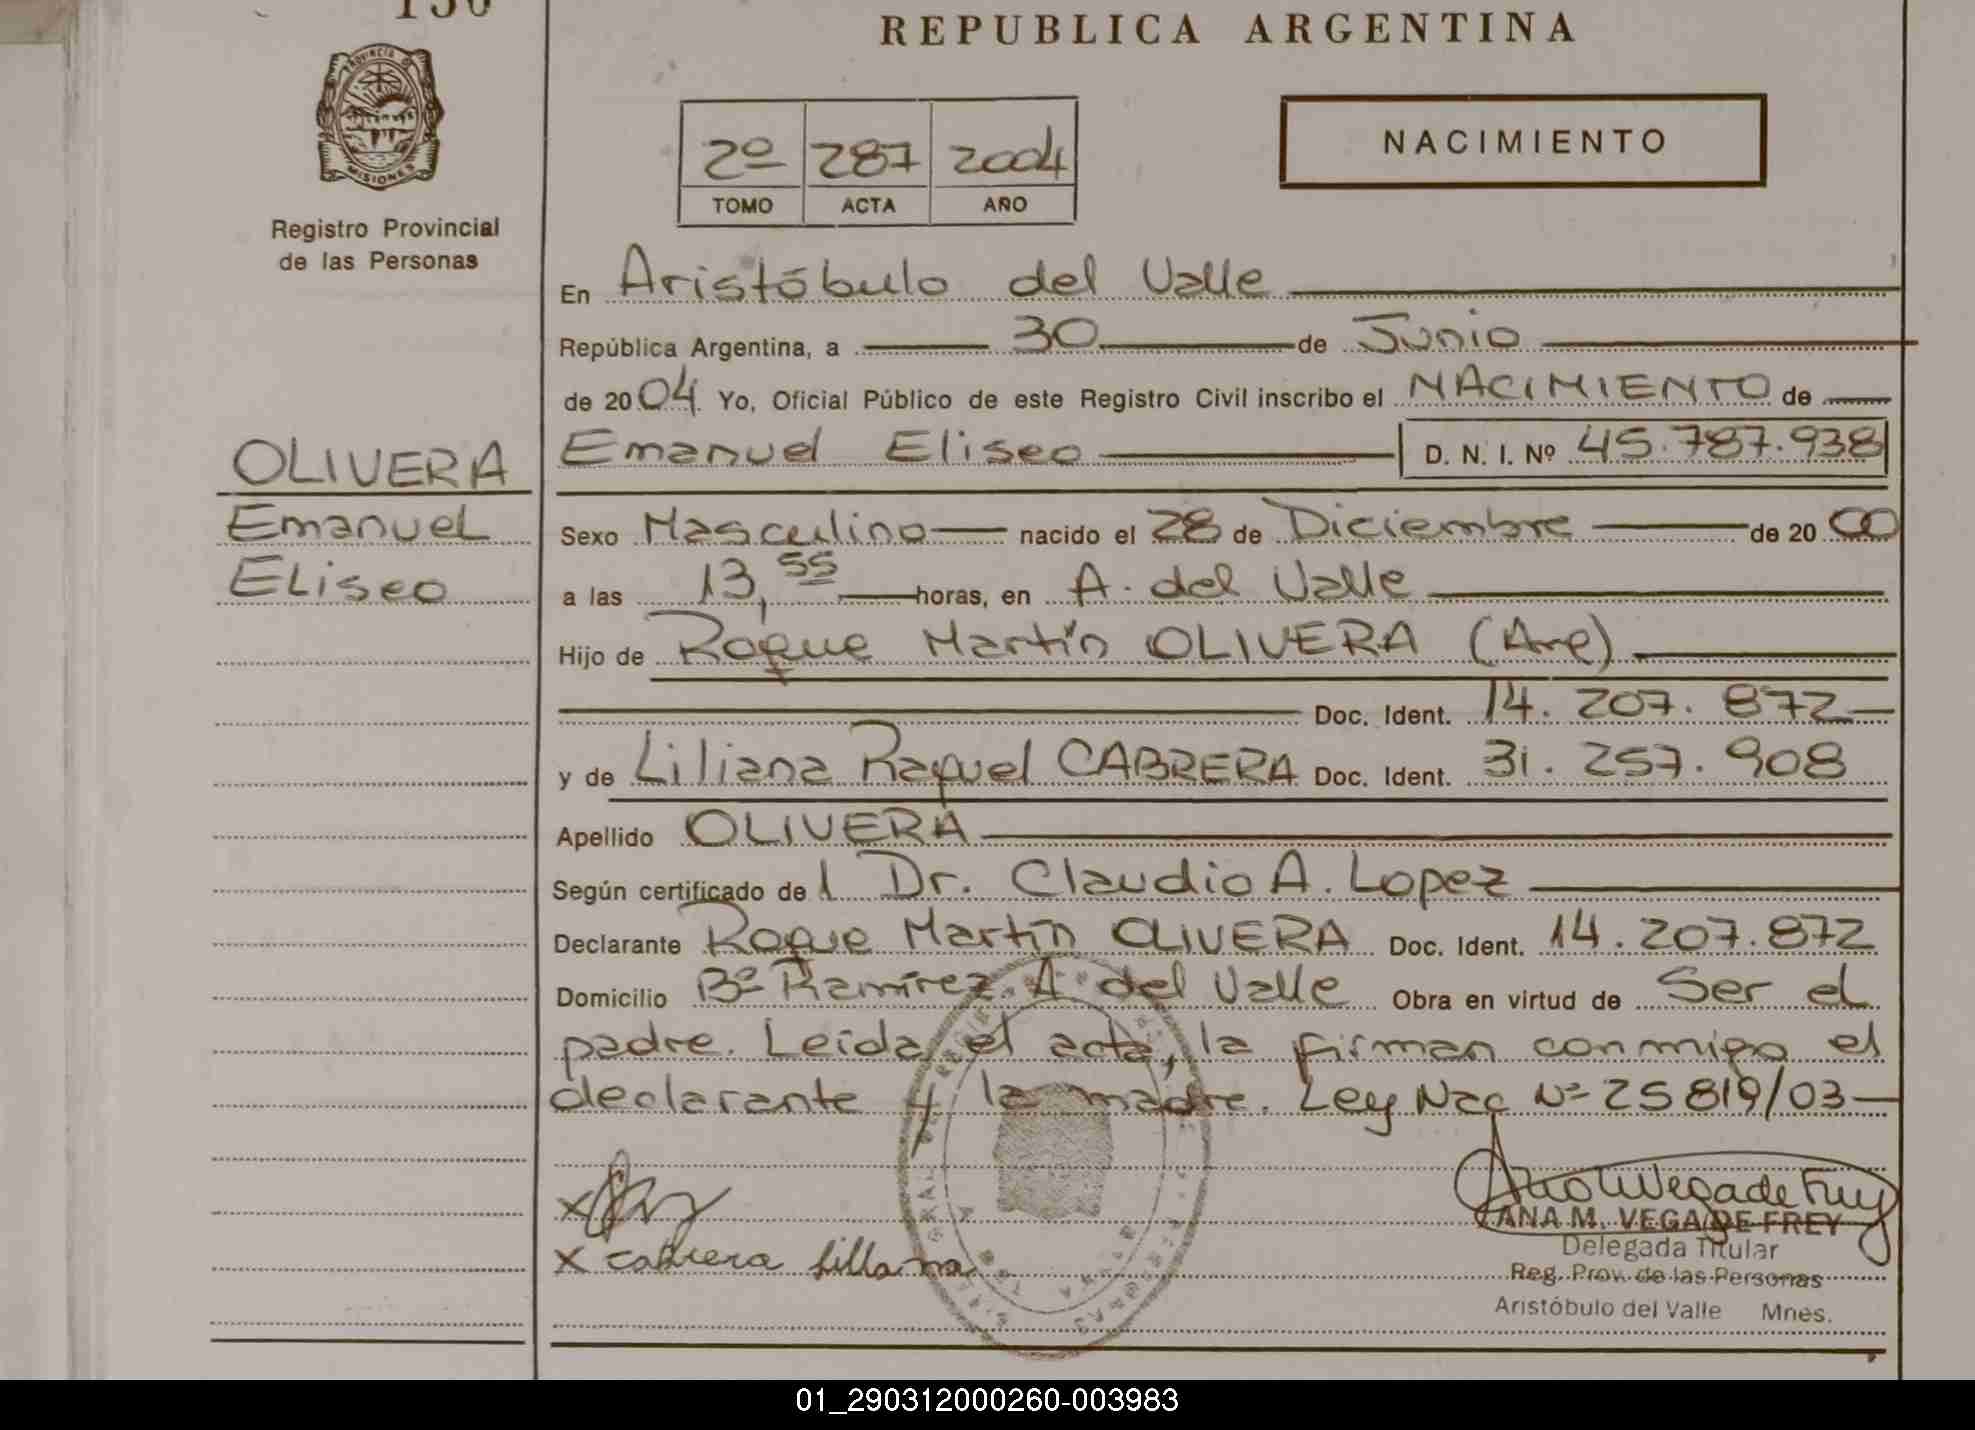 REPUBLICA ARGENTINA
PROVINCIA DE
MISIONES
Registro Provincial
de las Personas
NACIMIENTO
2º 287 2004
TOMO ACTA AÑO
En Aristóbulo del Valle
República Argentina, a 30 de Junio
de 2004. Yo, Oficial Público de este Registro Civil inscribo el NACIMIENTO de
Emanuel Eliseo D. N. I. Nº 45.787.938
OLIVERA
Emanuel
Eliseo
Sexo Masculino nacido el 28 de Diciembre de 2000
a las 13,55 horas, en A. del Valle
Hijo de Roque Martín OLIVERA (Arg)
Doc. Ident. 14.207.872
y de Liliana Raquel CABRERA Doc. Ident. 31.257.908
Apellido OLIVERA
Según certificado del Dr. Claudio A. Lopez
Declarante Roque Martín OLIVERA Doc. Ident. 14.207.872
Domicilio Bº Ramírez. A. del Valle Obra en virtud de Ser el
padre. Leída el acta, la firman conmigo el
declarante y la madre. Ley Nac Nº 25819/03
X
X Cabrera Liliana
ANA M. VEGA DE FREY
Delegada Titular
Reg. Prov. de las Personas
Aristóbulo del Valle Mnes.
01_290312000260-003983